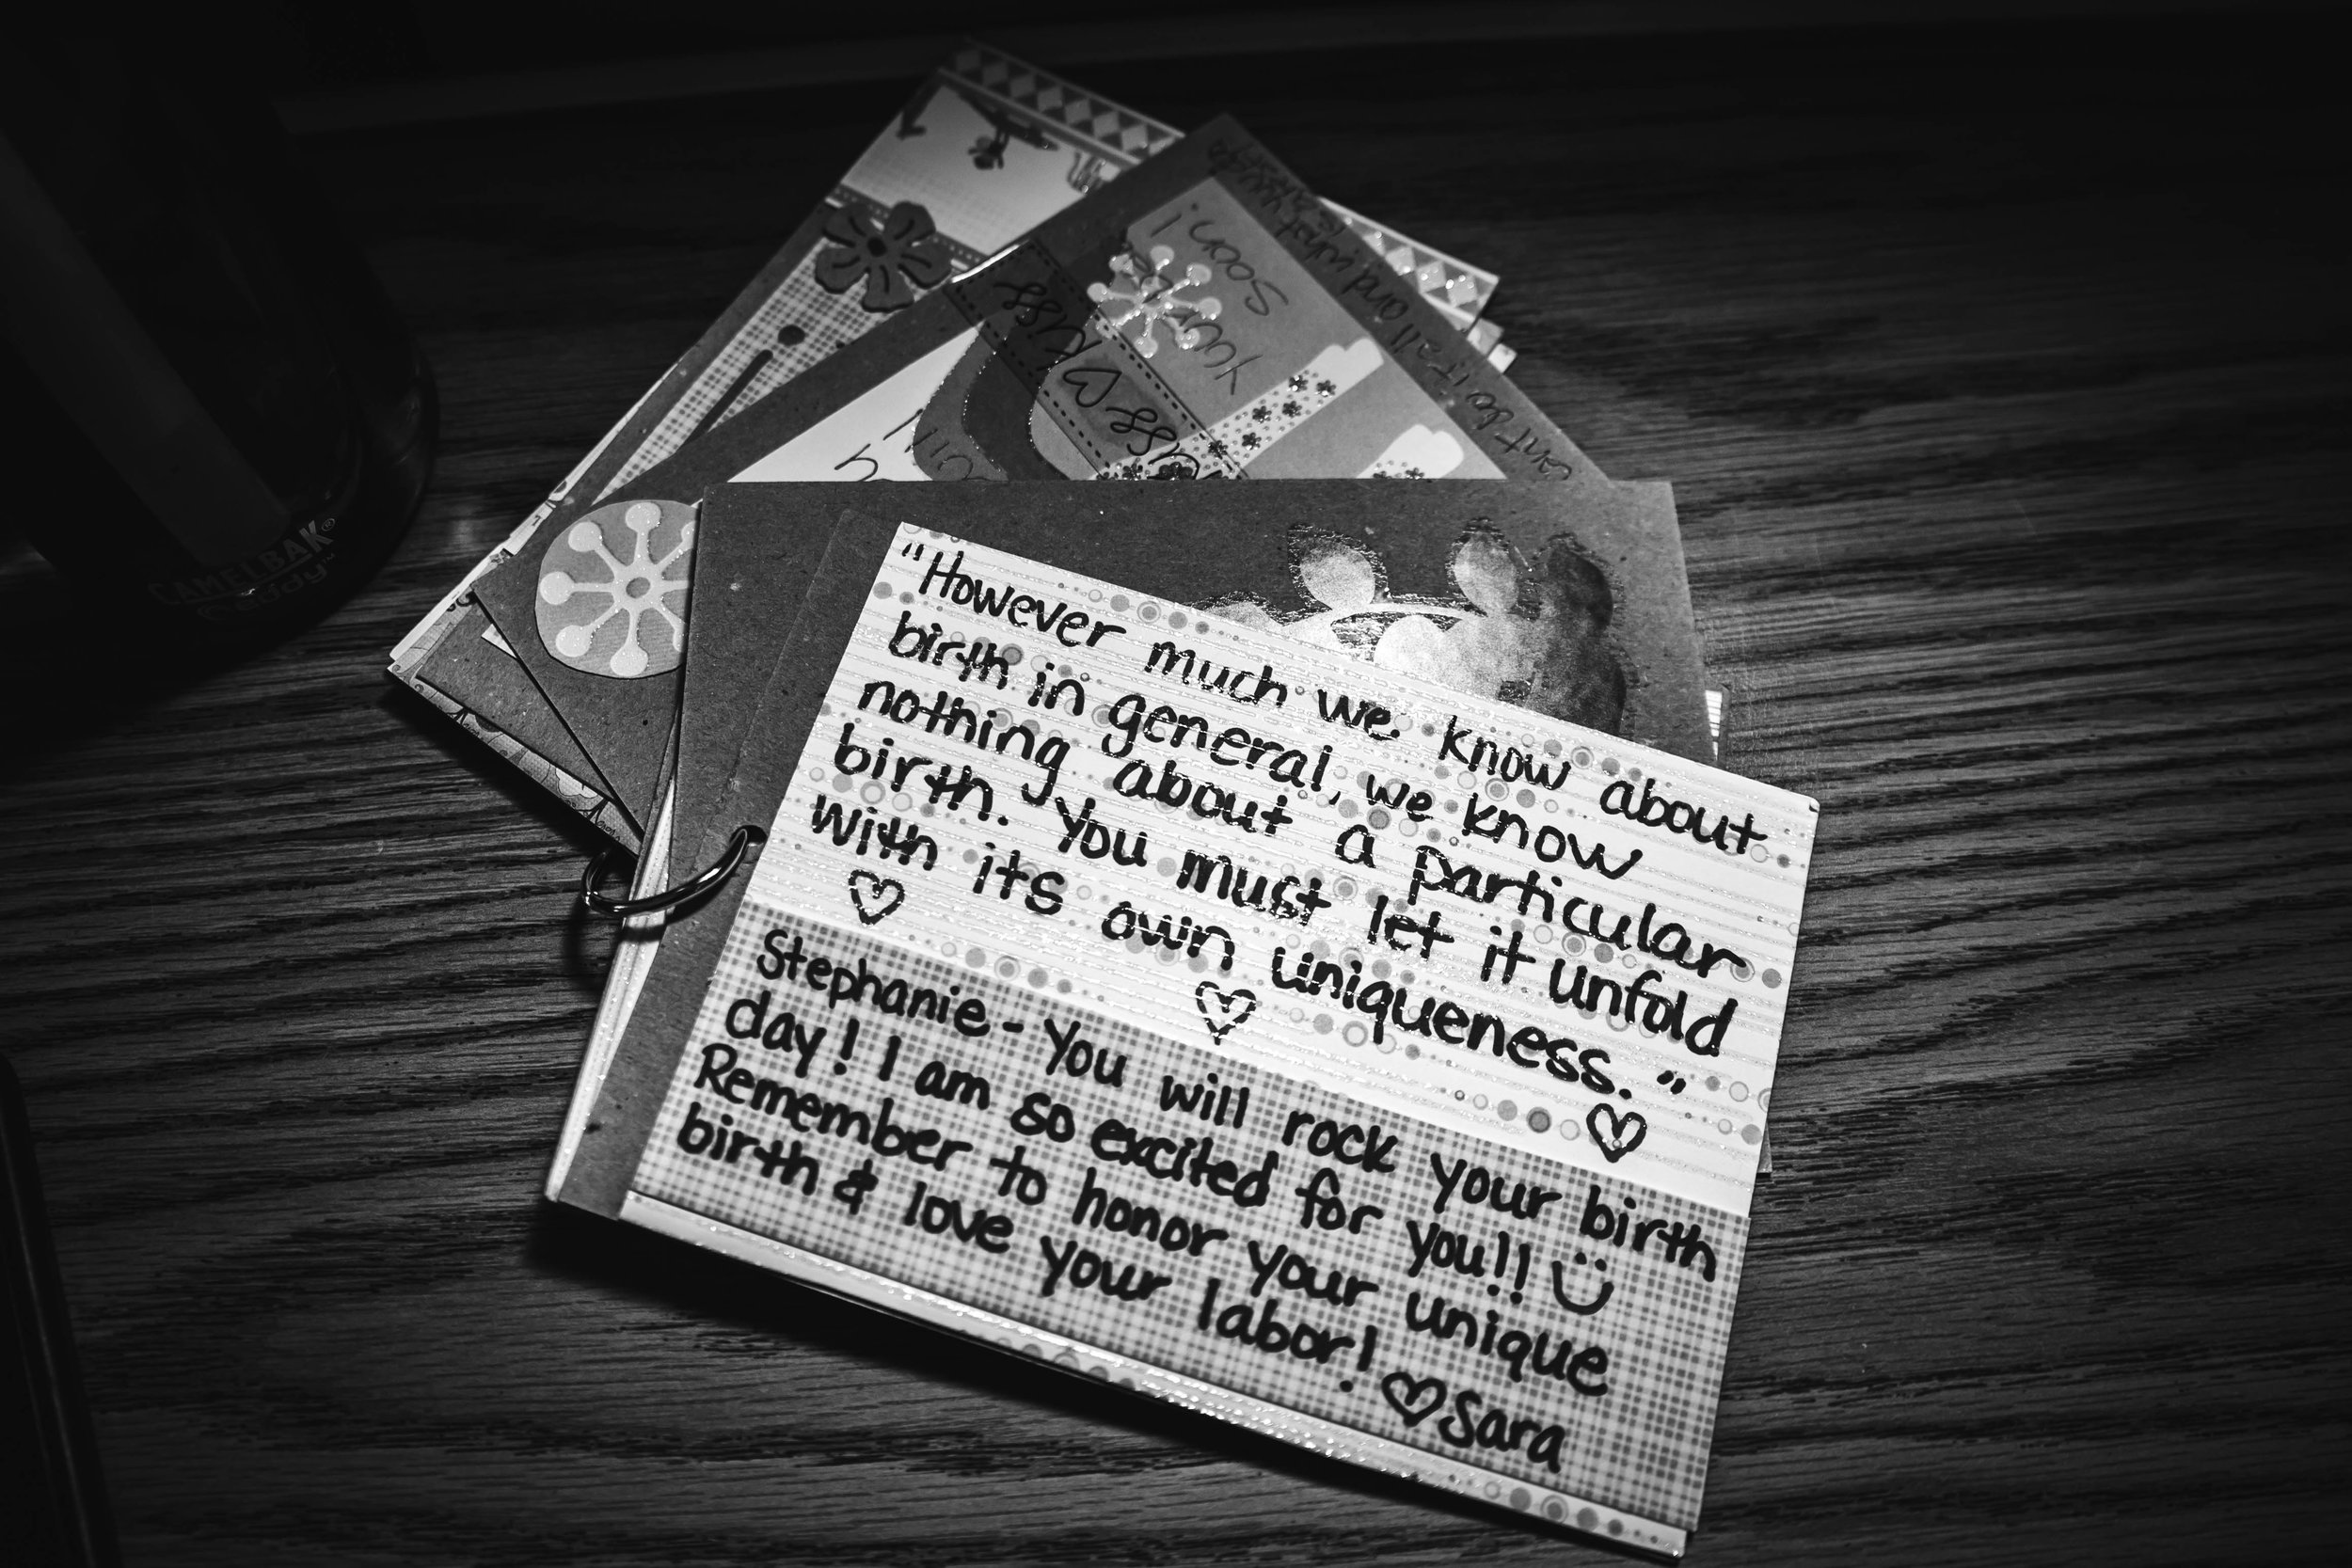 "However much we know about
birth in general, we know
nothing about a particular
birth. You must let it unfold
with its own uniqueness."
Stephanie - You will rock your birth
day! I am so excited for you!!
Remember to honor your unique
birth & love your labor! Sara
Soon!
your
Kuss
Kuss
can't do it all and what
CAMELBAK®
eddy™